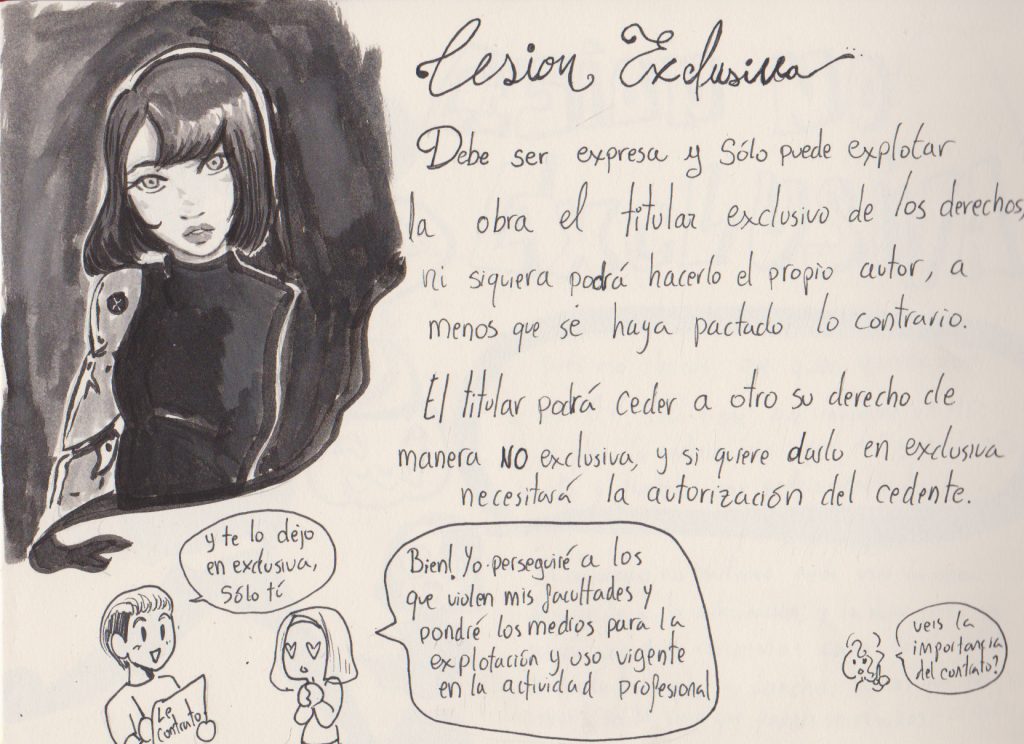 Cesion Exclusiva
Debe ser expresa y Sólo puede explotar
la obra el titular exclusivo de los derechos,
ni siquiera podrá hacerlo el propio autor, a
menos que se haya pactado lo contrario.
El titular podrá ceder a otro su derecho de
manera NO exclusiva, y si quiere darlo en exclusiva
necesitará la autorización del cedente.
y te lo dejo
en exclusiva,
Sólo tí
Bien! Yo perseguiré a los
que violen mis facultades y
pondré los medios para la
explotación y uso vigente
en la actividad profesional
veis la
importancia
del contrato?
Le
contrato